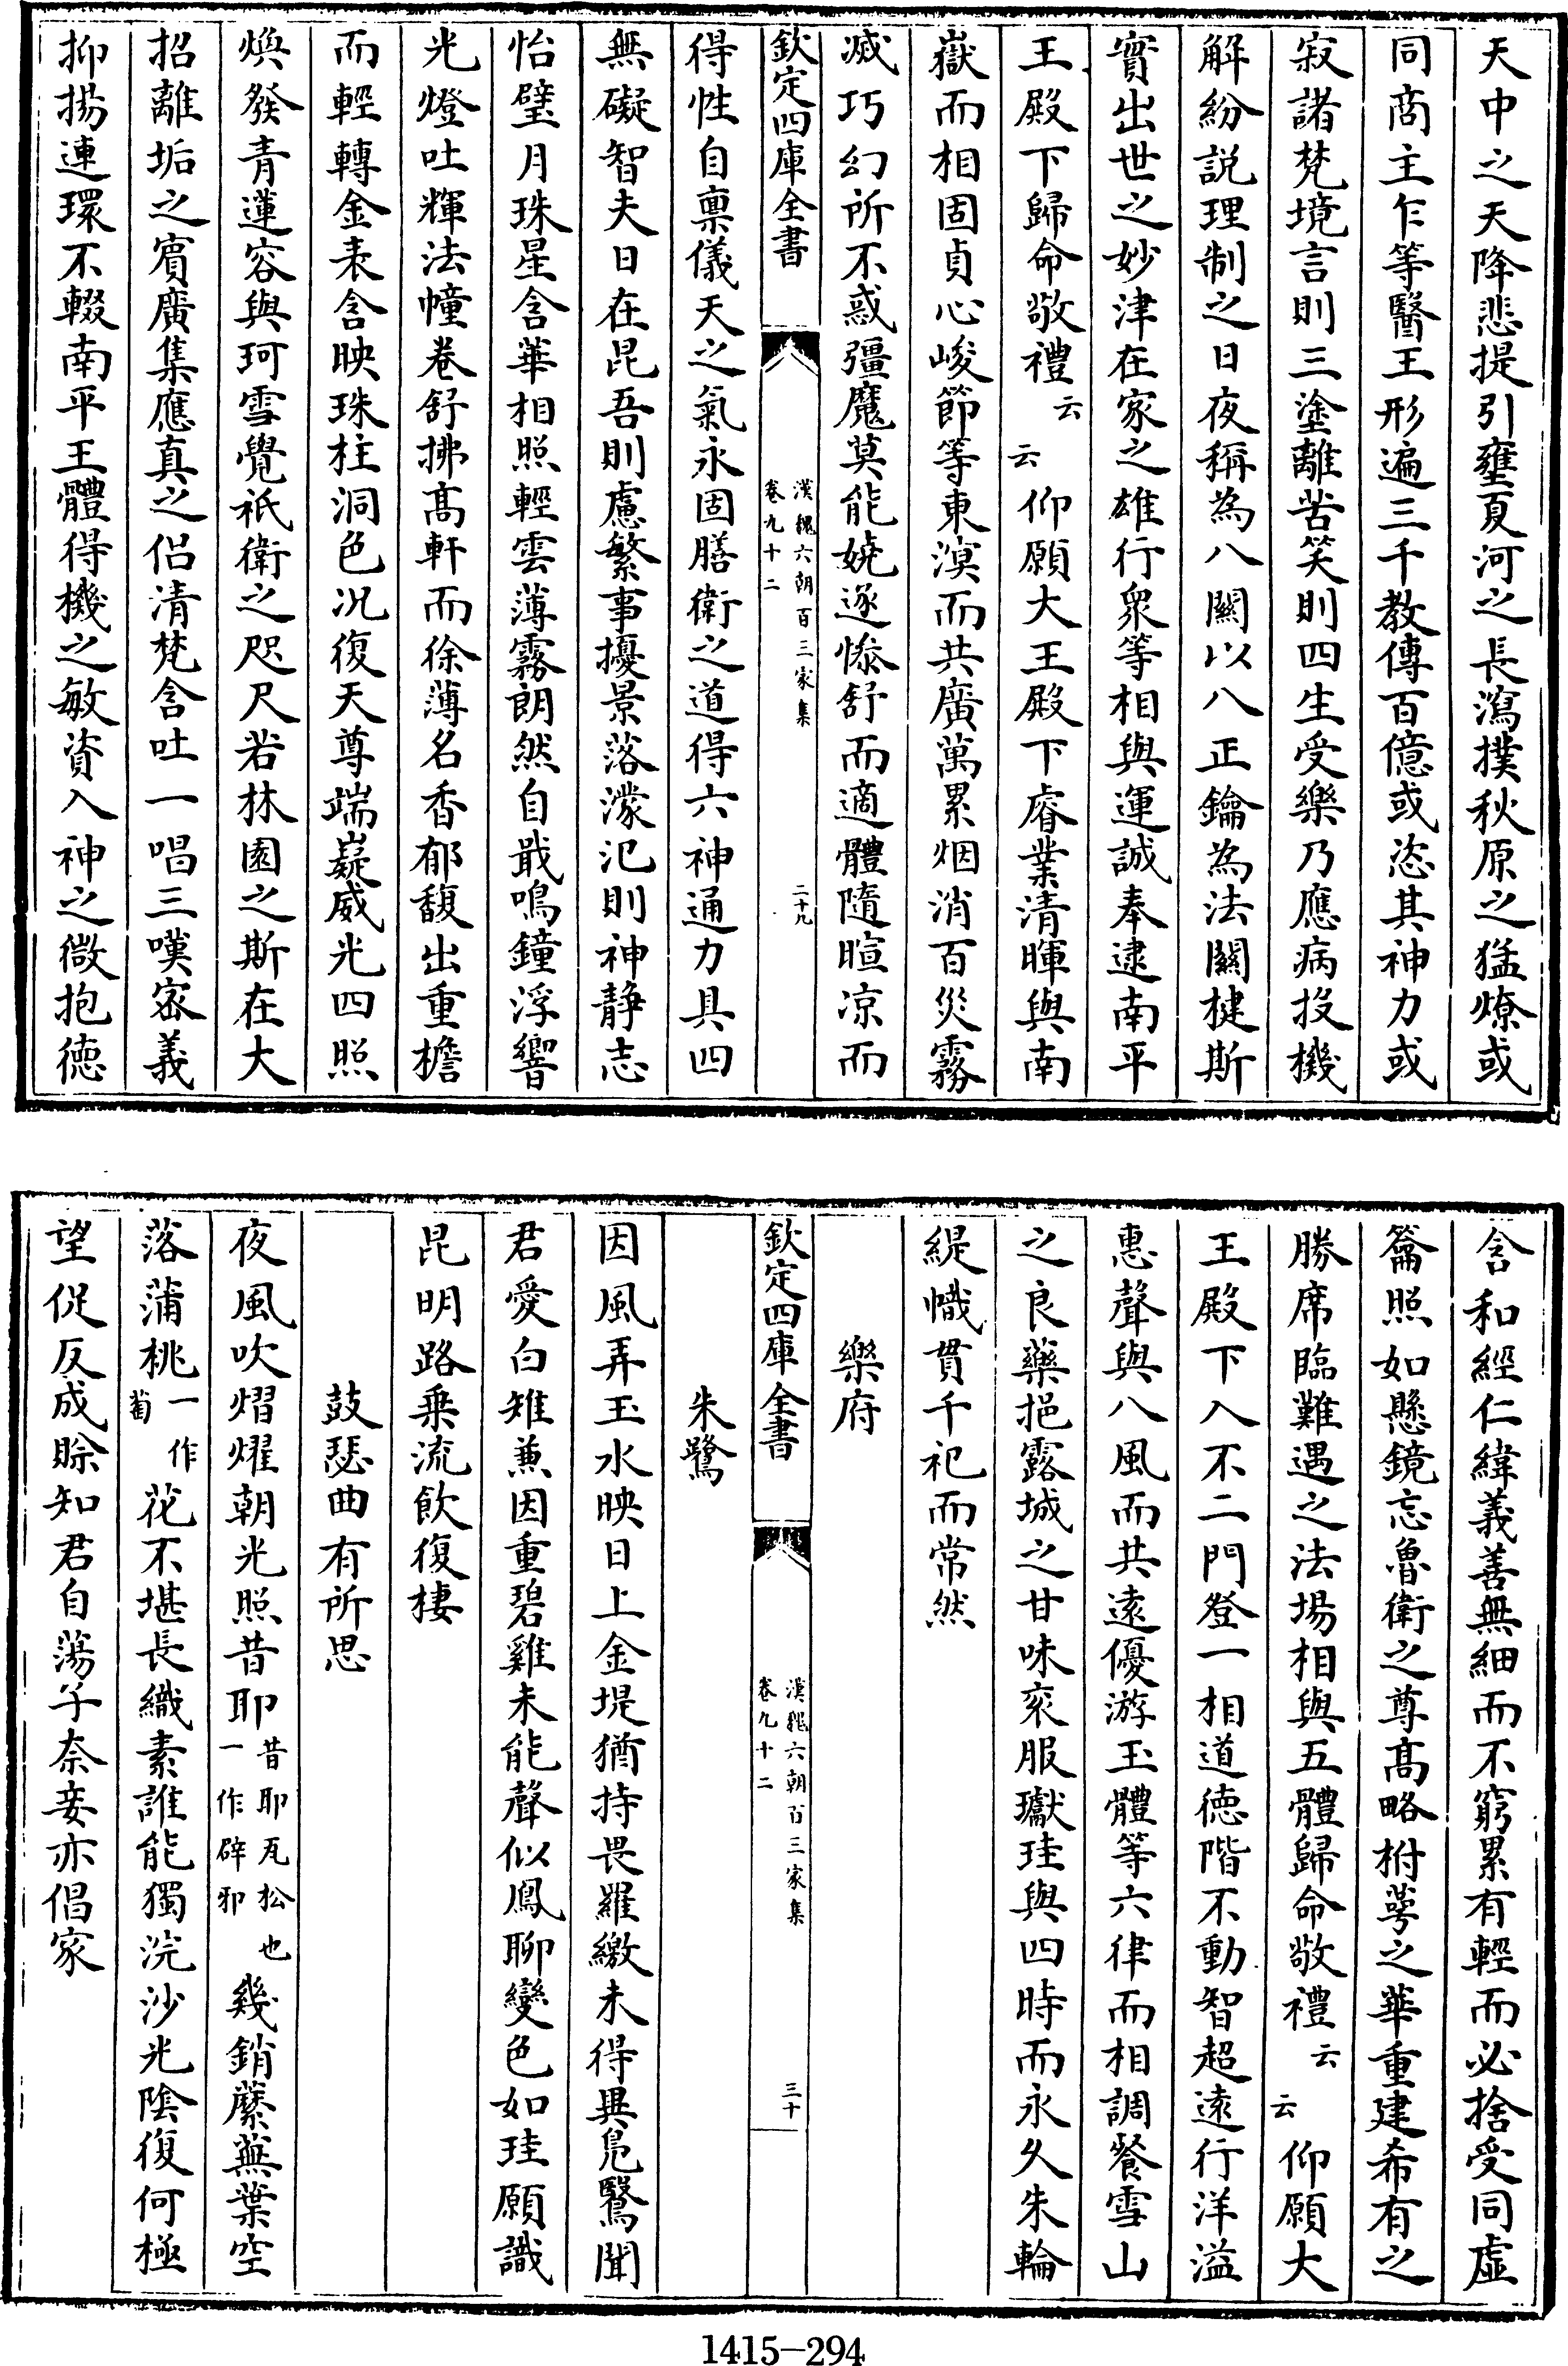 天中之天降悲提引壅夏河之長瀉撲秋原之猛燎或
同商主乍等醫王形遍三千教傳百億或恣其神力或
寂諸梵境言則三塗離苦笑則四生受樂乃應病投機
解紛説理制之日夜稱為八關以八正鑰為法關楗斯
實出世之妙津在家之雄行衆等相與運誠奉逮南平
王殿下歸命敬禮云云仰願大王殿下睿業清暉與南
嶽而相固貞心峻節等東溟而共廣萬累烟消百災霧
滅巧幻所不惑彊魔莫能嬈逐慘舒而適體隨暄涼而
欽定四庫全書
漢魏六朝百三家集
卷九十二
二十九
得性自稟儀天之氣永固膳衛之道得六神通力具四
無礙智夫日在昆吾則慮繁事擾景落濛汜則神静志
怡璧月珠星含華相照輕雲薄霧朗然自戢鳴鐘浮響
光燈吐輝法幢卷舒拂髙軒而徐薄名香郁馥出重檐
而輕轉金表含映珠柱洞色况復天尊端嶷威光四照
煥發青蓮容與珂雪覺祇衛之咫尺若林園之斯在大
招離垢之賓廣集應真之侣清梵含吐一唱三嘆密義
抑揚連環不輟南平王體得機之敏資入神之微抱德
含和經仁緯義善無細而不窮累有輕而必捨受同虚
籥照如懸鏡忘魯衛之尊髙略柎萼之華重建希有之
勝席臨難遇之法場相與五體歸命敬禮云云仰願大
王殿下入不二門登一相道德階不動智超遠行洋溢
惠聲與八風而共遠優游玉體等六律而相調餐雪山
之良藥挹露城之甘味衮服瓛珪與四時而永久朱輪
緹幟貫千祀而常然
樂府
欽定四庫全書
漢魏六朝百三家集
卷九十二
三十
朱鷺
因風弄玉水映日上金堤猶持畏羅繳未得異鳧鷖聞
君愛白雉兼因重碧雞未能聲似鳳聊變色如珪願識
昆明路乗流飲復棲
鼓瑟曲有所思
夜風吹熠燿朝光照昔耶昔耶瓦松也一作辟邪幾銷蘼蕪葉空
落蒲桃一作萄花不堪長織素誰能獨浣沙光陰復何極
望促反成賒知君自蕩子奈妾亦倡家
1415-294